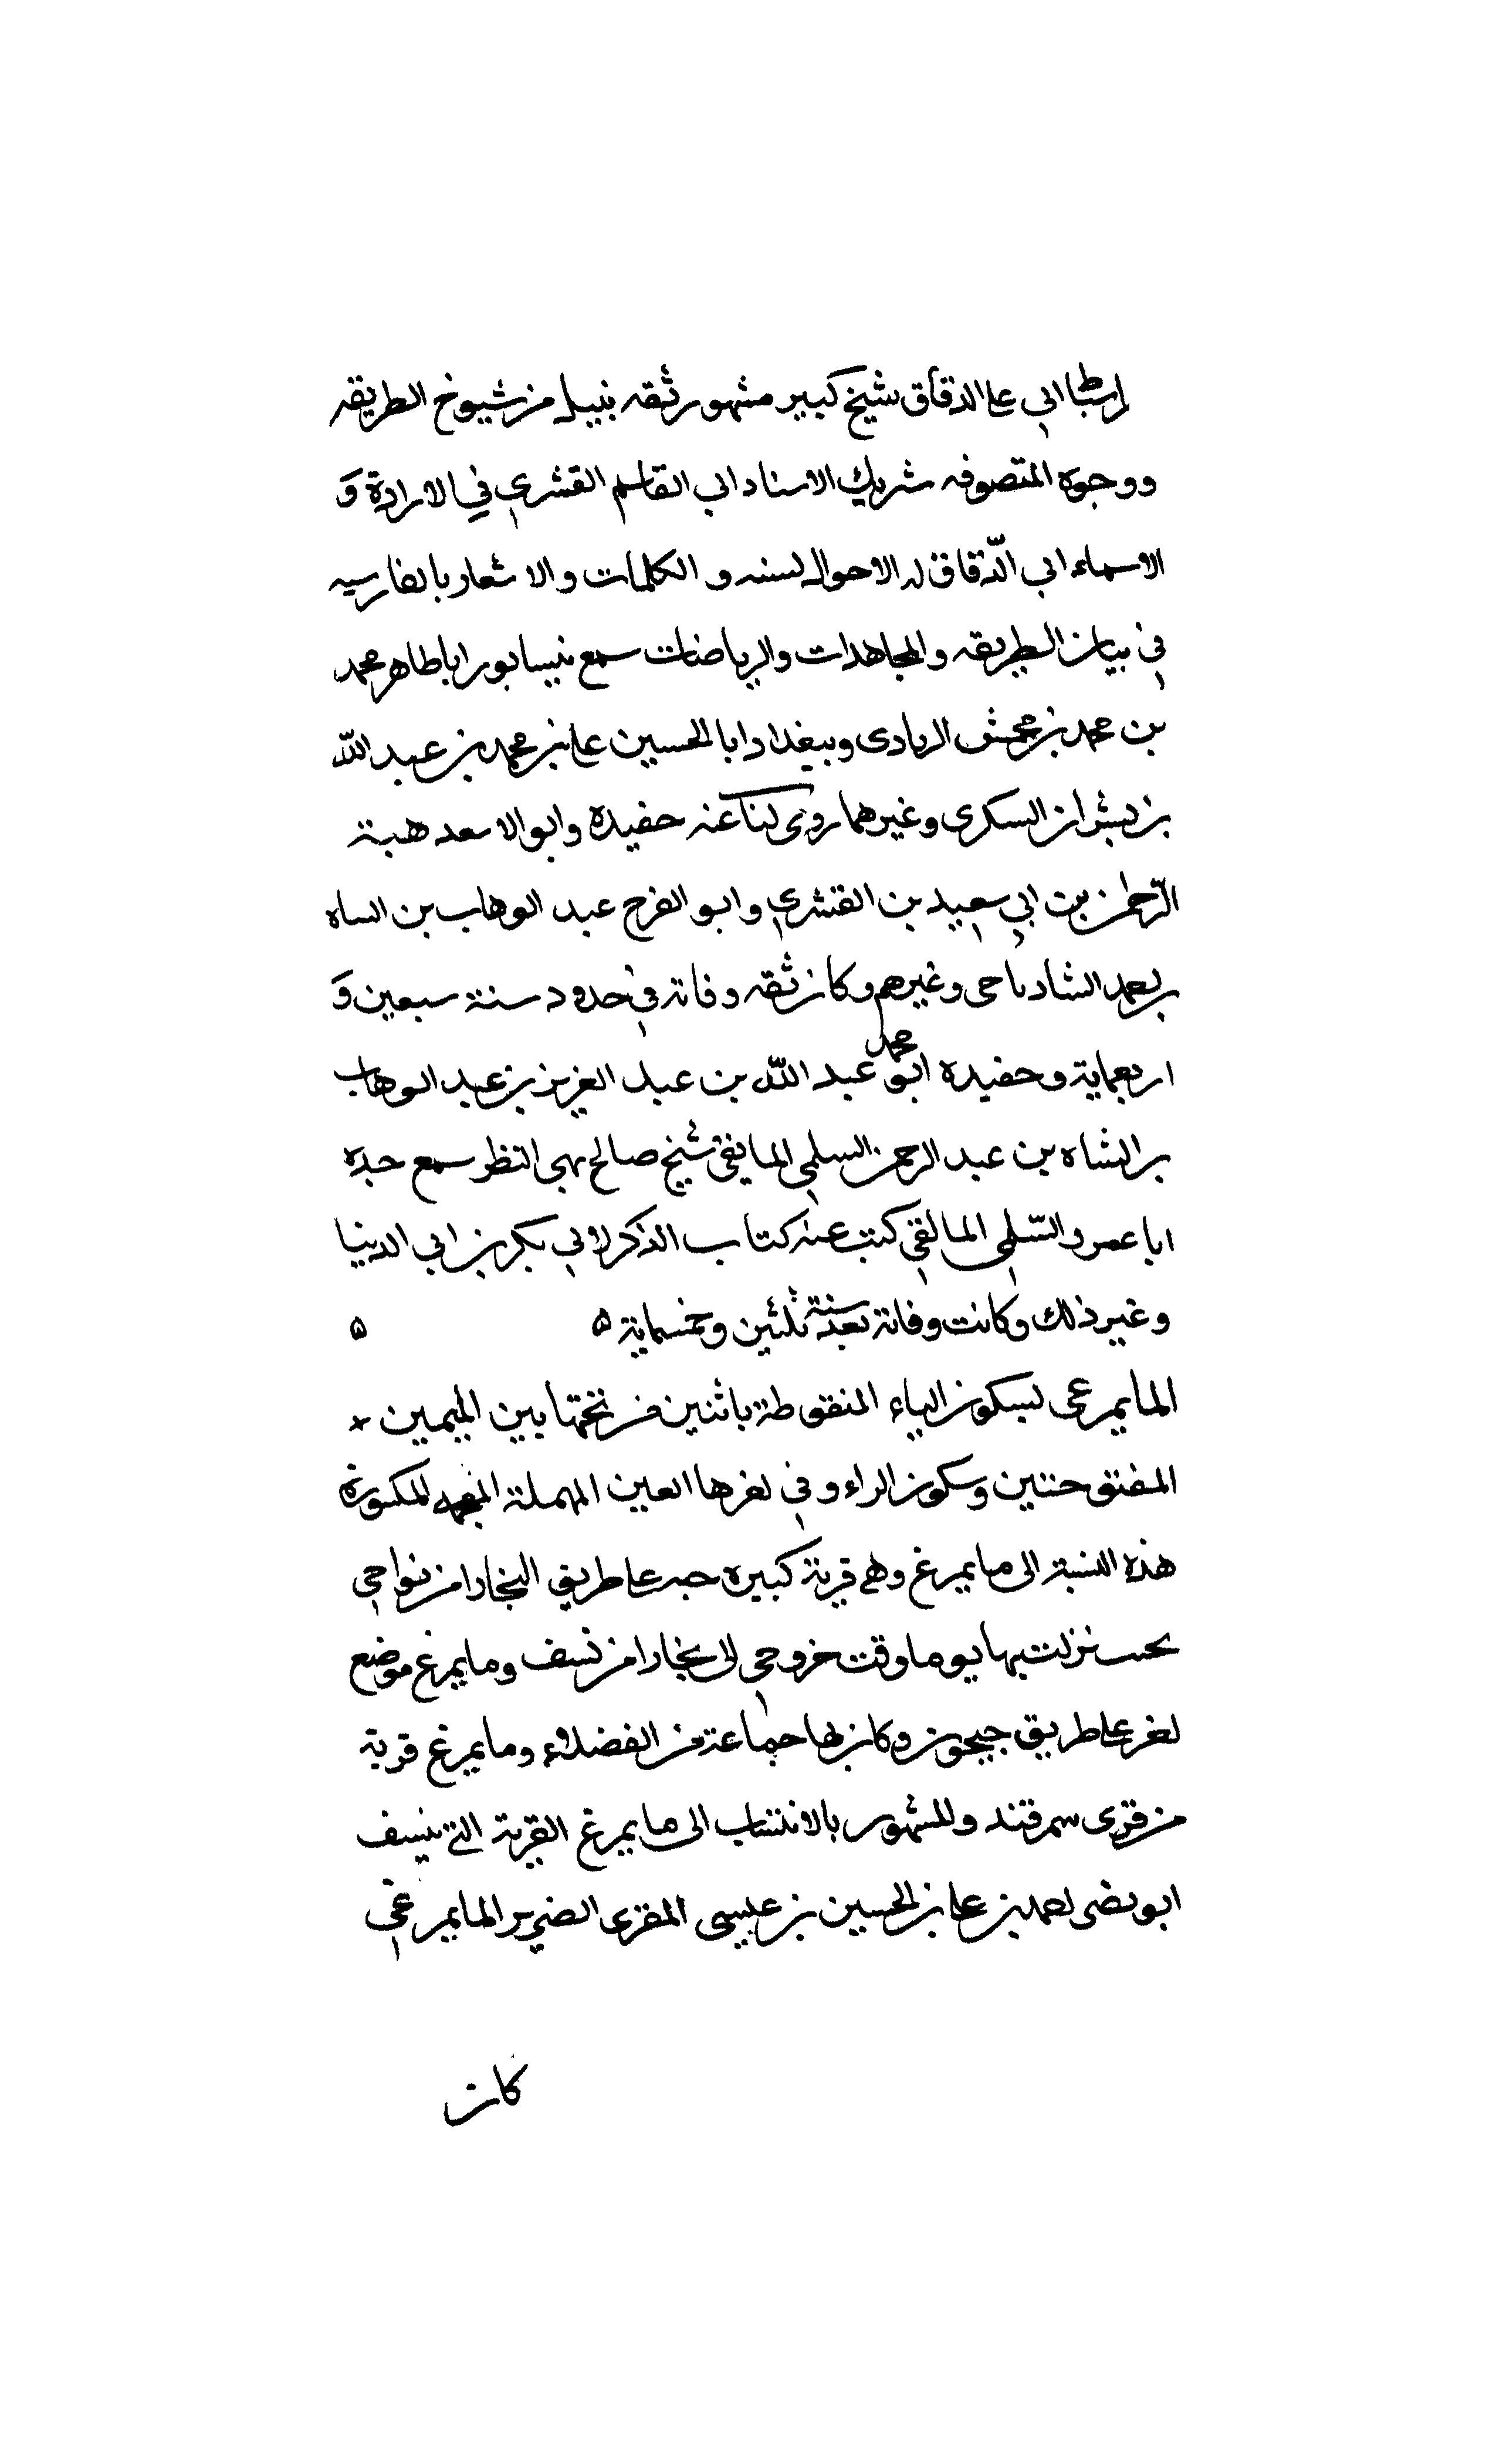 ابي على الدقاق شيخ كبير مشهور ثقه نبيل من شيوخ الطريقه
ووجوه المتصوفه شريك الاستاد ابى القاسم القشيري في الارادة وَ
الاسماء ابي الدّقاق له الاحوال لسنه و الكلمات والاشعار بالفارسيه
في بيان الطريقه والمجاهدات والرياضات سمع بنيسابور ابا طاهر محمد
بن محمد بن محمش الزيادى وببغداد ابا الحسين على بن محمد بن عبد اللّه
بن بشران السكرى وغيرهما روى لنا عنه حفيده وابو الاسعد هبة
الرّحمن بن ابي سعيد بن القشري وابو الفرح عبد الوهاب بن الساه
بن احمد الشادياحى وغيرهم وكان ثقه وفاته في حدود سنة سبعين وَ
اربعماية وحفيده ابو محمد عبد اللّه بن عبد العزيز بن عبد الوهاب
بن الشاه بن عبد الرحمن السلمي المايقى شيخ صالح بهى النظر سمع جده
ابا عمرو السّلمى المالقي كتب عنه كتاب الذكر لابي بكر بن ابي الدنيا
وغير ذلك وكانت وفاته بعد سنة ثلثين وخمسماية ۵ ۵
المايمرغى بسكون الياء المنقوطة باثنين من تحتها بين الميمين
المفتوحتين وسكون الراء وفي اخرها العين المهملة المعجمه المكسورة
هذه النسبة الى مايمرغ وهى قرية كبيره حسنه على طريق البخارا من نواحي
نخشب نزلت بها يوما وقت خروجي الى بخارا من نسف ومايمرغ موضع
اخر على طريق جيحون وكان بها جماعة من الفضلاء ومايمرغ قرية
من قرى سمرقند والمشهور بالانتساب الى مايمرغ القرية التى بنسف
ابو نصر احمد بن على بن الحسين بن عيسى المقرى الضرير المايمرغي
كان